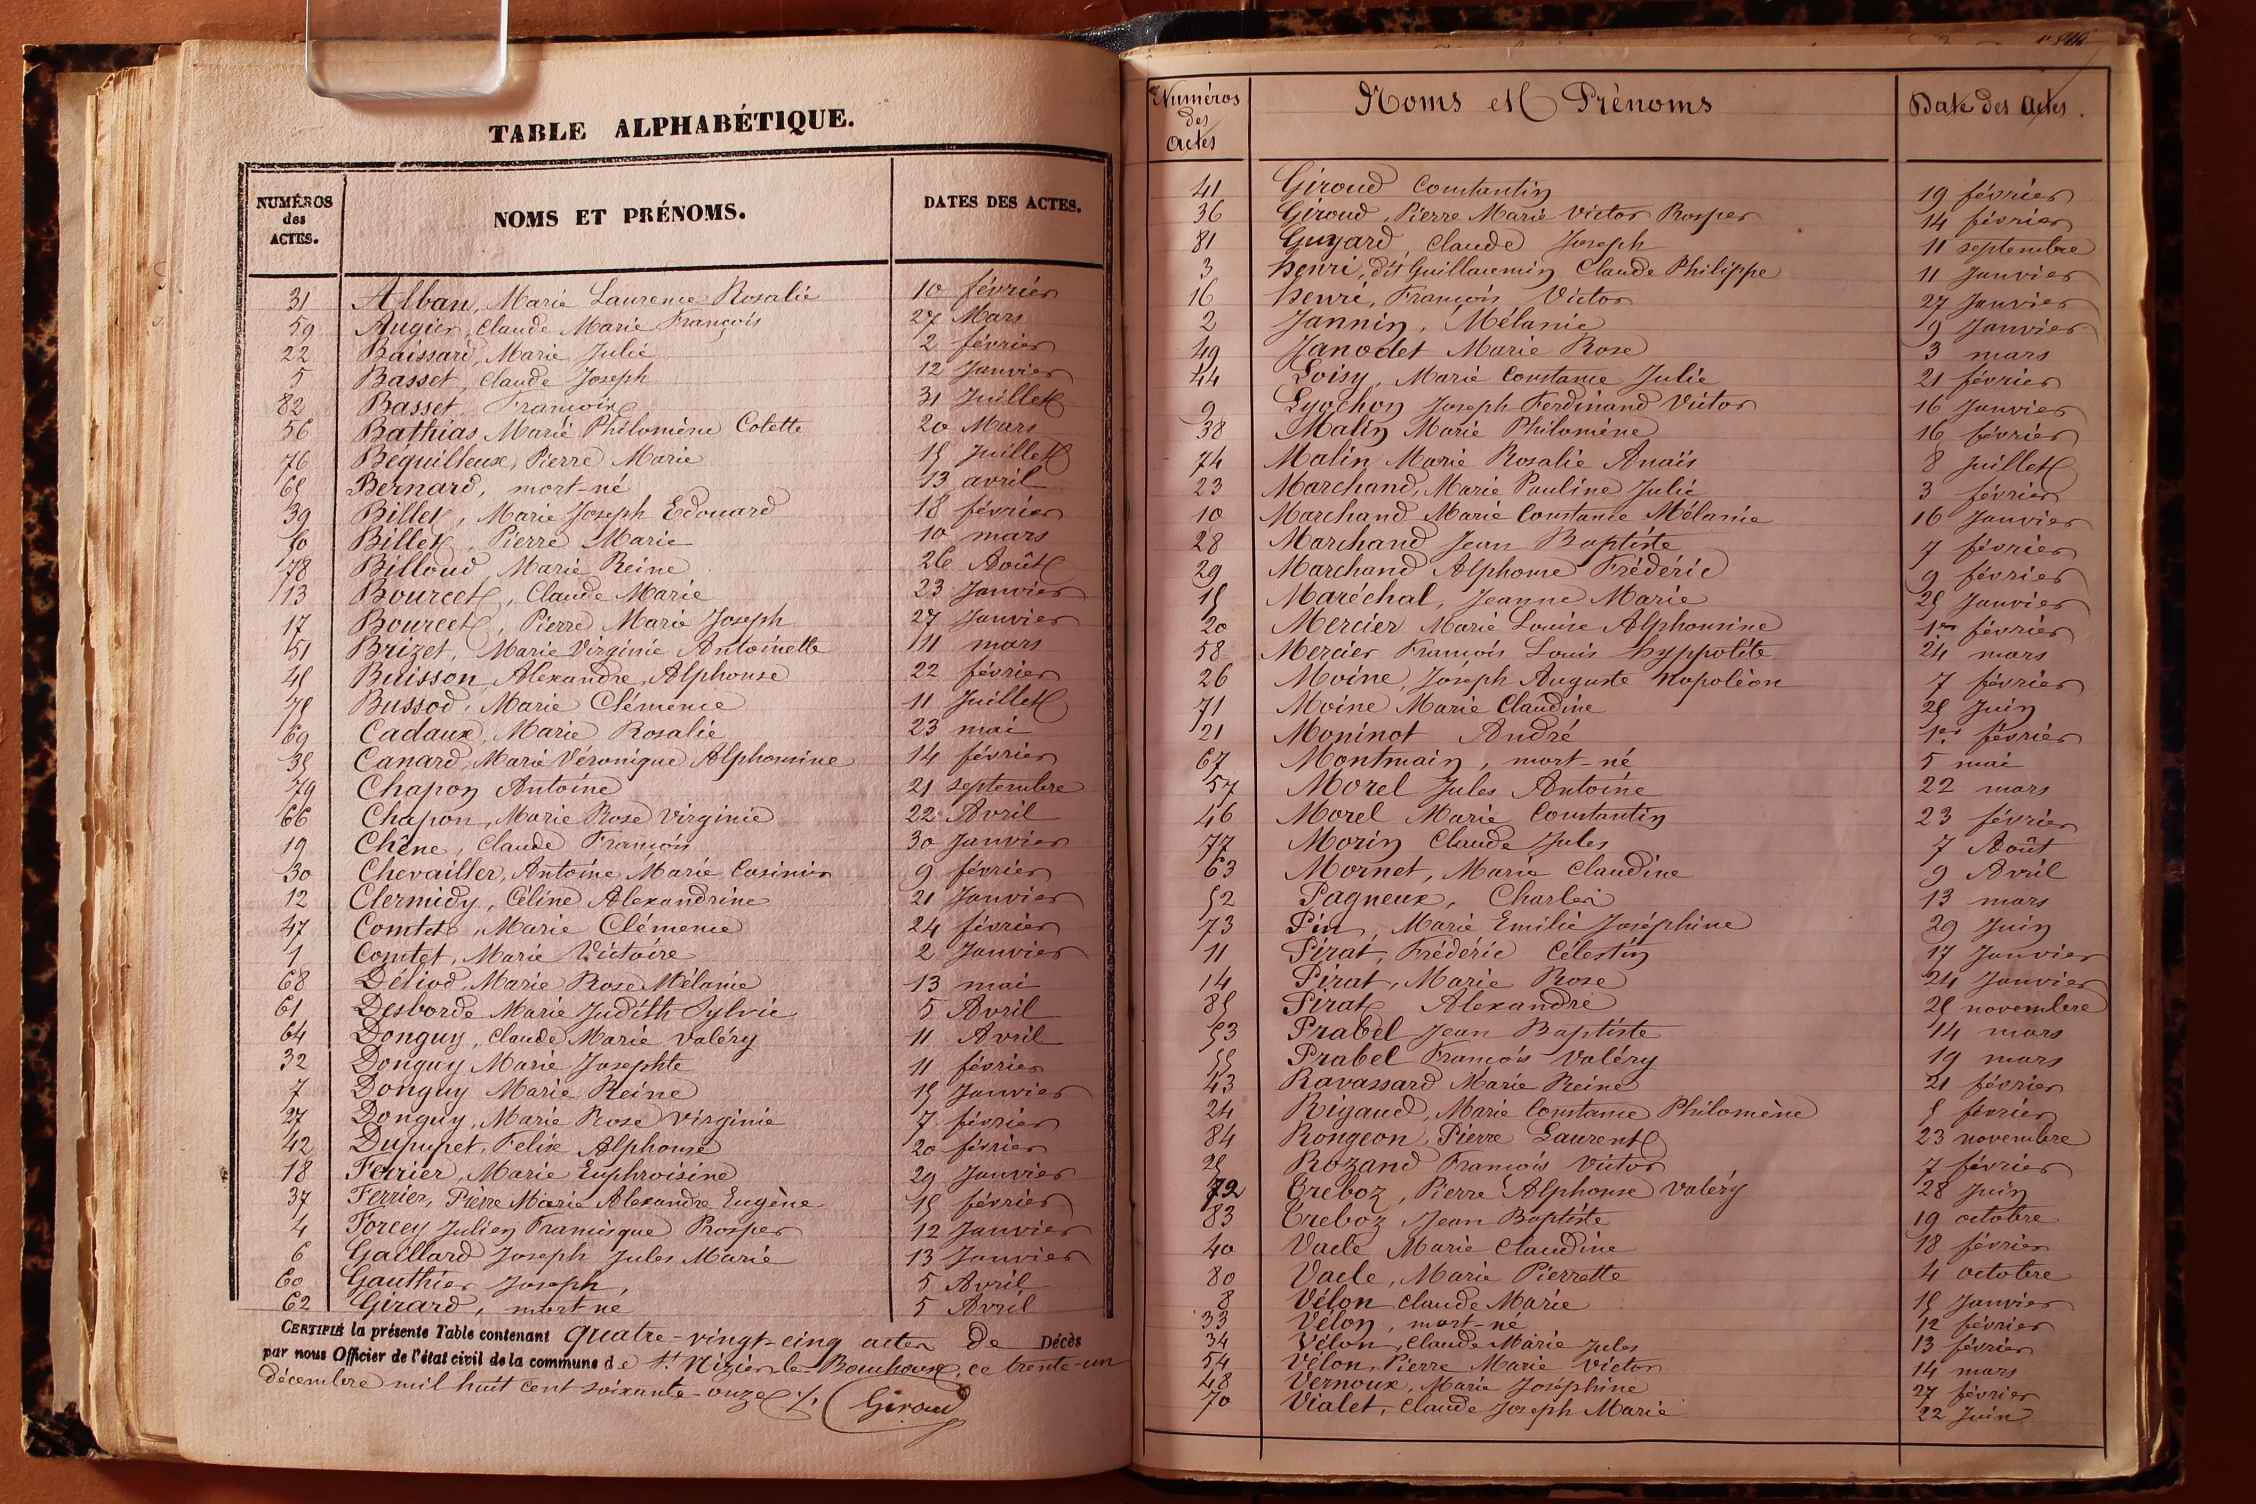 TABLE ALPHABÉTIQUE.
NUMÉROS des ACTES. NOMS ET PRÉNOMS. DATES DES ACTES.
31 Alban, Marie Laurence Rosalie 10 février
59 Augier, Claude Marie François 27 Mars
22 Baissard, Marie Julie 2 février
5 Basset, Claude Joseph 12 Janvier
82 Basset, Françoise 31 Juillet
56 Bathias, Marie Philomène Colette 20 Mars
76 Bequilleux, Pierre Marie 15 Juillet
65 Bernard, mort-né 13 avril
39 Billet, Marie Joseph Edouard 18 février
50 Billet, Pierre Marie 10 mars
78 Billoud Marie Reine 26 Août
13 Bourcet, Claude Marie 23 Janvier
17 Bourcet, Pierre Marie Joseph 27 Janvier
51 Brizet, Marie Virginie Antoinette 11 mars
45 Buisson, Alexandre, Alphonse 22 février
75 Bussod, Marie Clémence 11 Juillet
69 Cadaux, Marie Rosalie 23 mai
35 Canard, Marie Véronique Alphonsine 14 février
79 Chapon Antoine 21 septembre
66 Chapon, Marie Rose Virginie 22 Avril
19 Chêne, Claude François 30 Janvier
30 Chevailler, Antoine Marie Casimir 9 février
12 Clermidy, Céline Alexandrine 21 Janvier
47 Comtet, Marie Clémence 24 février
1 Comtet, Marie Victoire 2 Janvier
68 Déliod, Marie Rose Mélanie 13 mai
61 Desborde Marie Judith Sylvie 5 Avril
64 Donguy, Claude Marie Valéry 11 Avril
32 Donguy Marie Josephte 11 février
7 Donguy Marie Reine 15 Janvier
27 Donguy, Marie Rose Virginie 7 février
42 Dupupet, Felix Alphonse 20 février
18 Ferrier, Marie Euphroisine 29 Janvier
37 Ferrier, Pierre Marie Alexandre Eugène 15 février
4 Forcey Julien Francisque Prosper 12 Janvier
6 Gaillard Joseph Jules Marie 13 Janvier
60 Gauthier Joseph 5 Avril
62 Girard, mort né 5 Avril
CERTIFIÉ la présente Table contenant quatre-vingt-cinq actes de Décès
par nous Officier de l'état civil de la commune de St Nizier-le-Bouchoux, ce trente-un
décembre mil huit cent soixante-onze ./. Giroud
Numéros des Actes Noms et Prénoms Date des Actes.
41 Giroud Constantin 19 février
36 Giroud, Pierre Marie Victor Prosper 14 février
81 Guyard, Claude Joseph 11 septembre
3 henri, dit Guillaumin Claude Philippe 11 Janvier
16 henri, François Victor 27 Janvier
2 Jannin, Mélanie 9 Janvier
49 Janodet Marie Rose 3 mars
44 Loisy, Marie Constance Julie 21 février
9 Lyochon Joseph Ferdinand Victor 16 Janvier
38 Malin Marie Philomène 16 février
74 Malin Marie Rosalie Anaïs 8 Juillet
23 Marchand, Marie Pauline Julie 3 février
10 Marchand Marie Constance Mélanie 16 Janvier
28 Marchand Jean Baptiste 7 février
29 Marchand Alphonse Frédéric 9 février
15 Maréchal, Jeanne Marie 25 Janvier
20 Mercier Marie Louise Alphonsine 1er février
58 Mercier François Louis hyppolite 24 mars
26 Moine, Joseph Auguste Napoléon 7 février
71 Moine Marie Claudine 25 Juin
21 Moninot André 1er février
67 Montmain, mort-né 5 mai
57 Morel Jules Antoine 22 mars
46 Morel Marie Constantin 23 février
77 Morin Claude Jules 7 Août
63 Mornet, Marie Claudine 9 Avril
52 Pagneux, Charles 13 mars
73 Pin, Marie Emilie Joséphine 29 Juin
11 Pirat, Frédéric Célestin 17 Janvier
14 Pirat, Marie Rose 24 Janvier
85 Pirat Alexandre 25 novembre
53 Prabel Jean Baptiste 14 mars
55 Prabel François Valéry 19 mars
43 Ravassard Marie Reine 21 février
24 Rigaud, Marie Constance Philomène 5 février
84 Rongeon, Pierre Laurent 23 novembre
25 Rozand François Victor 7 février
72 Treboz, Pierre Alphonse Valéry 28 Juin
83 Treboz Jean Baptiste 19 octobre
40 Vacle Marie Claudine 18 février
80 Vacle, Marie Pierrette 4 octobre
8 Vélon Claude Marie 15 Janvier
33 Vélon, mort-né 12 février
34 Vélon, Claude Marie Jules 13 février
54 Vélon, Pierre Marie Victor 14 mars
48 Vernoux, Marie Joséphine 27 février
70 Vialet, Claude Joseph Marie 22 Juin